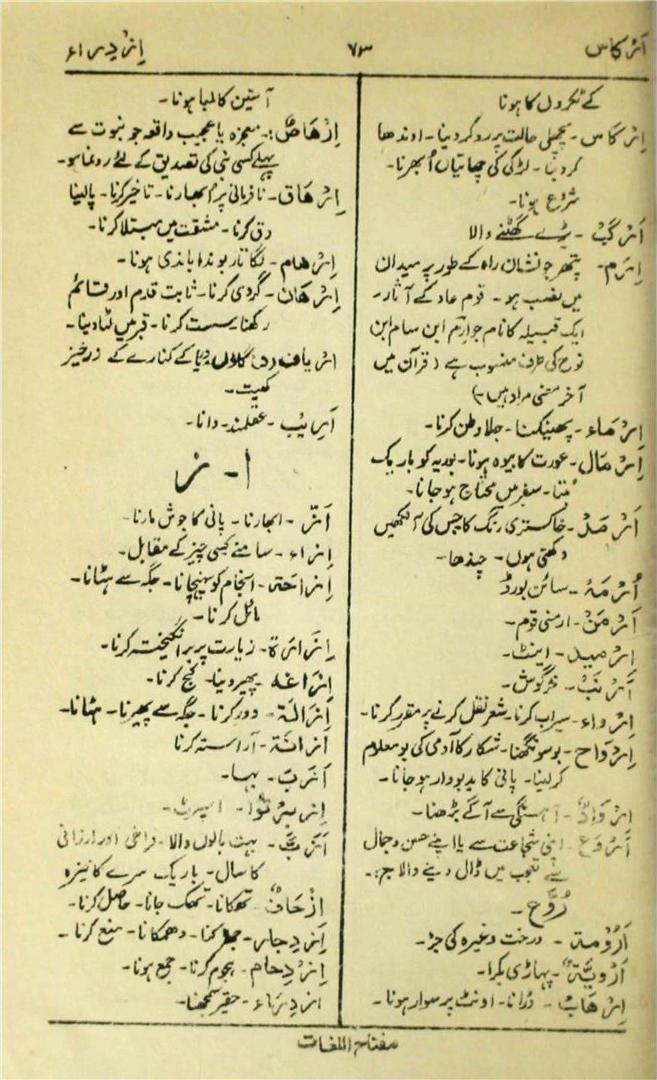 اَرْکاس
۷۳
اِزْدِراء
کے ٹکڑوں کا ہونا
اِرْکَاس۔ پچھلی حالت پر رد کر دینا۔ اوندھا
کر دینا۔ لڑکی کی چھاتیاں اُبھرنا۔
شروع ہونا۔
اَرْکَبْ۔ بڑے گھٹنے والا
اِرَم۔ پتھر جو نشان راہ کے طور پر میدان
میں نصب ہو۔ قوم عاد کے آثار۔
ایک قبیلہ کا نام جو ارم ابن سام ابن
نوح کی طرف منسوب ہے (قرآن میں
آخر معنی مراد ہیں۔)
اِرْمَاء۔ پھینکنا۔ جلا وطن کرنا۔
اِرْمَال۔ عورت کا بیوہ ہونا۔ بوریہ کو باریک
بُننا۔ سفر میں محتاج ہو جانا۔
اَرْمَدْ۔ خاکستری رنگ کا جس کی آنکھیں
دکھتی ہوں۔ چندھا۔
اُرْمَهْ۔ سائن بورڈ
اَرْمَنْ۔ ارمنی قوم۔
اِرْمِید۔ اینٹ۔
اَرْنَبْ۔ خرگوش۔
اِرْوَاء۔ سیراب کرنا۔ شعر نقل کرنے پر مقرر کرنا۔
اِرْوَاح۔ بو سونگھنا۔ شکار کا آدمی کی بو معلوم
کر لینا۔ پانی کا بدبودار ہو جانا۔
اِرْوَادْ۔ آہستگی سے آگے بڑھنا۔
اَرْوَع۔ اپنی شجاعت سے یا اپنے حسن و جمال
سے تعجب میں ڈال دینے والا جم:۔
رُوْع۔
اَرُوْمَة۔ درخت وغیرہ کی جڑ۔
اُرْوِیَّة۔ پہاڑی بکرا۔
اِرْهَابْ۔ ڈرانا۔ اونٹ پر سوار ہونا۔
آستین کا لمبا ہونا۔
اِرْهَاصْ:۔ معجزہ یا عجیب واقعہ جو نبوت سے
پہلے کسی نبی کی تصدیق کے لئے رونما ہو۔
اِرْهَاق۔ نافرمانی پر اُبھارنا۔ تاخیر کرنا۔ پالینا
دق کرنا۔ مشقت میں مبتلا کرنا۔
اِرْهَام۔ لگاتار بوندا باندی ہونا۔
اِرْهَان۔ گروی کرنا۔ ثابت قدم اور قائم
رکھنا۔ سست کرنا۔ قبر میں لٹا دینا۔
اَرْیَاف گاؤں دریا کے کنارے کے زرخیز
کھیت۔
اَرِیْب۔ عقلمند۔ دانا۔
ا۔ ز
اَزّ۔ ابھارنا۔ پانی کا جوش مارنا۔
اِزاء۔ سامنے کسی چیز کے مقابل۔
اِزَاحَة۔ انجام کو پہنچانا۔ جگہ سے ہٹانا۔
مائل کرنا۔
اِزَارَة۔ زیارت پر برانگیختہ کرنا۔
اِزَاغَه۔ پھیر دینا۔ کج کرنا۔
اِزَالَة۔ دور کرنا۔ جگہ سے پھیرنا۔ ہٹانا۔
اِزَانَة۔ آراستہ کرنا
اَزَبَ۔ بہا۔
اَزَبّْ۔ بہت بالوں والا۔ فراخی اور ارزانی
کا سال۔ باریک سرے کا نیزہ
اِزْحَافْ۔ تھکانا۔ تھک جانا۔ حاصل کرنا۔
اِزْدِجَار۔ دھمکانا۔ منع کرنا۔
اِزْدِحَام۔ ہجوم کرنا۔ جمع ہونا۔
اِزْدِرَاء۔ حقیر سمجھنا۔
مفتاح اللغات